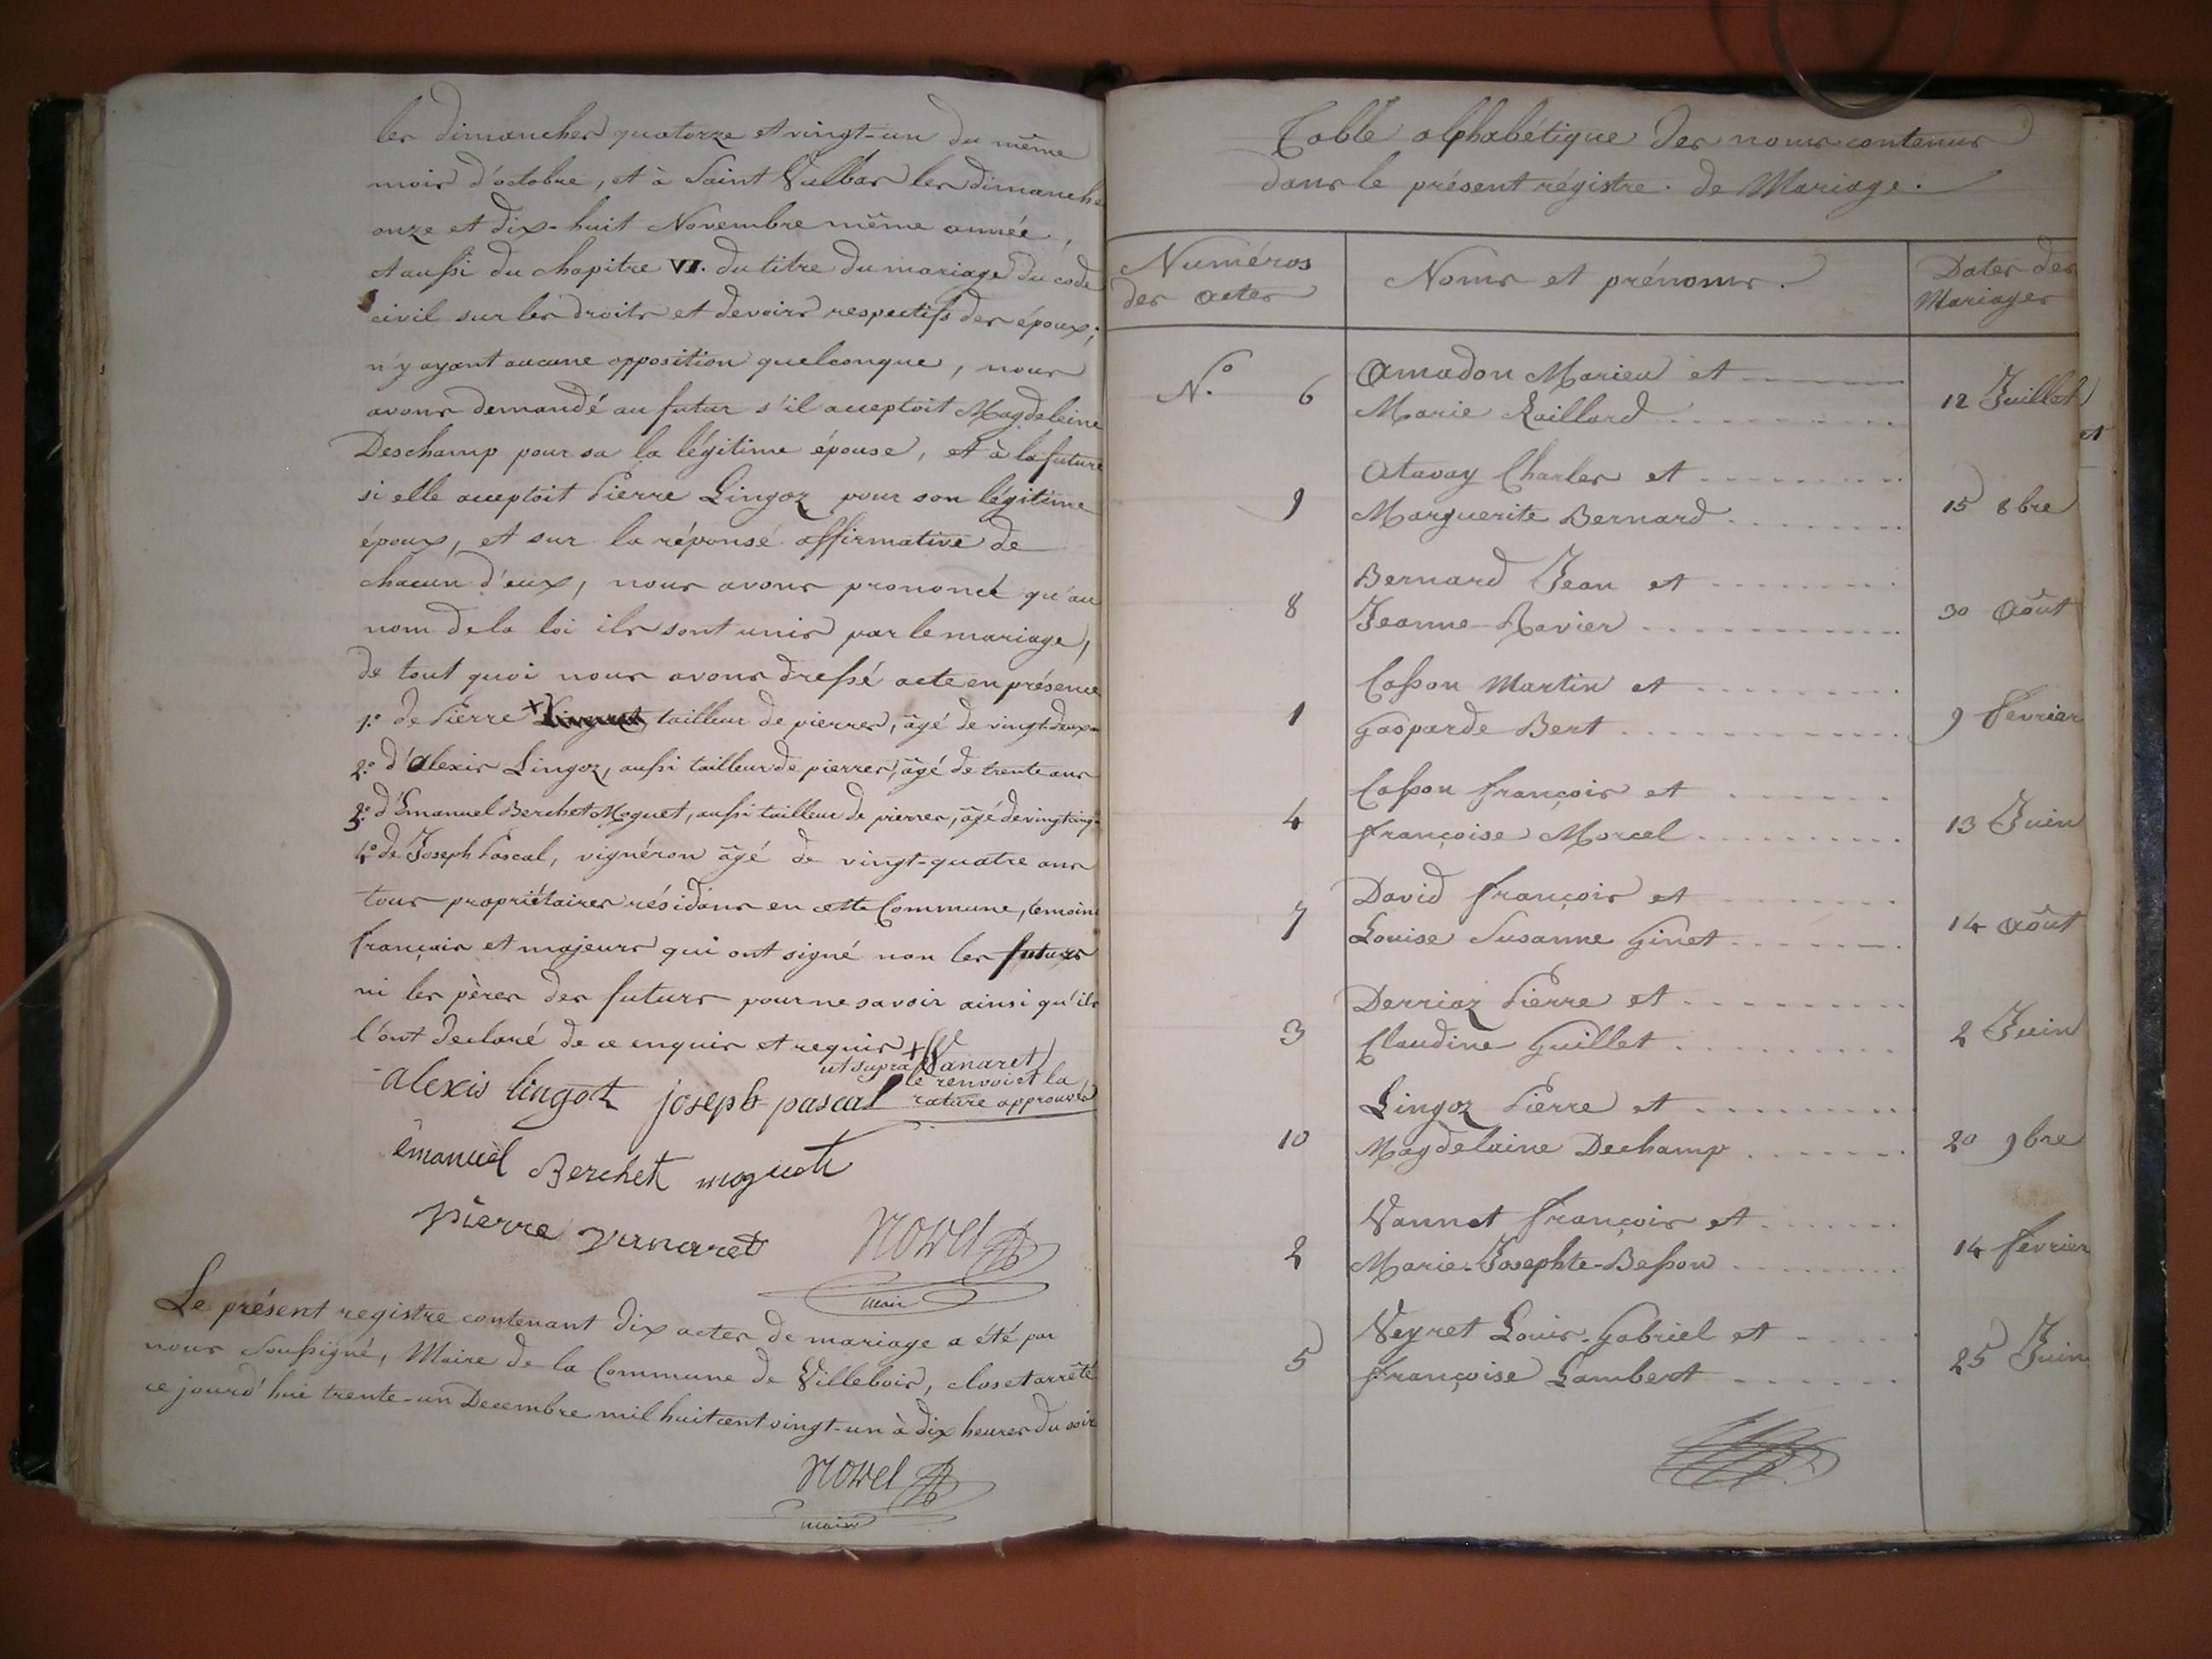 les dimanches quatorze et vingt-un du même
mois d'octobre, et à Saint Vulbas les dimanche
onze et dix-huit Novembre même année,
et aussi du chapitre VI. du titre du mariage du code
civil sur les droits et devoirs respectifs des époux;
n'y ayant aucune opposition quelconque, nous
avons demandé au futur s'il acceptoit Magdeleine
Deschamp pour sa la légitime épouse, et à la future
si elle acceptoit Pierre Lingoz pour son légitime
époux, et sur la réponse affirmative de
chacun d'eux, nous avons prononcé qu'au
nom de la loi ils sont unis par le mariage,
de tout quoi nous avons dressé acte en présence
1.° de Pierre + tailleur de pierres, âgé de vingt-deux
2.° d'Alexis Lingoz, aussi tailleur de pierres, âgé de trente ans
3.° d'Emanuel Berchet Moguet, aussi tailleur de pierres, âgé de vingt cinq
4.° de Joseph Pascal, vignéron âgé de vingt-quatre ans
tous propriétaires résidans en cette Commune, témoins
français et majeurs qui ont signé non les futurs
ni les pères des futurs pour ne savoir ainsi qu'ils
l'ont declaré de ce enquis et requis
+ Vanaret
ut supra le renvoi et la
rature approuvés
alexis lingoz joseph pascal
émanuel Berchet moguet
pierre vanaret Nowel
maire
Le présent registre contenant dix actes de mariage a été par
nous soussigné, Maire de la Commune de Villebois, clos et arrêté
ce jourd'hui trente-un Decembre mil huit cent vingt-un à dix heures du soir
Nowel
maire
Table alphabétique des noms contenus
dans le présent régistre de Mariage.
Numéros des actes Noms et prénoms. Dates des Mariages
N.° 6 Amadon Marieu et
Marie Raillard 12 Juillet
Atavay Charles et
9 Marguerite Bernard 15 8bre
Bernard Jean et
8 Jeanne-Ravier 30 Août
Casson Martin et
1 Gasparde Bert 9 février
Casson françois et
4 françoise Morcel 13 Juin
David françois et
7 Louise Susanne Ginet 14 Août
Derrioz Pierre et
3 Claudine Guillet 2 Juin
Lingoz Pierre et
10 Magdelaine Dechamp 20 9bre
Vannet françois et
2 Marie-Josephte-Besson 14 février
Veyret Louis-Gabriel et
5 françoise Lambert 25 Juin
et